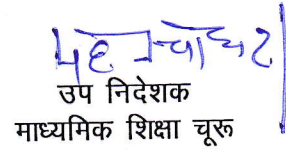 उप निदेशक
माध्यमिक शिक्षा चूरू